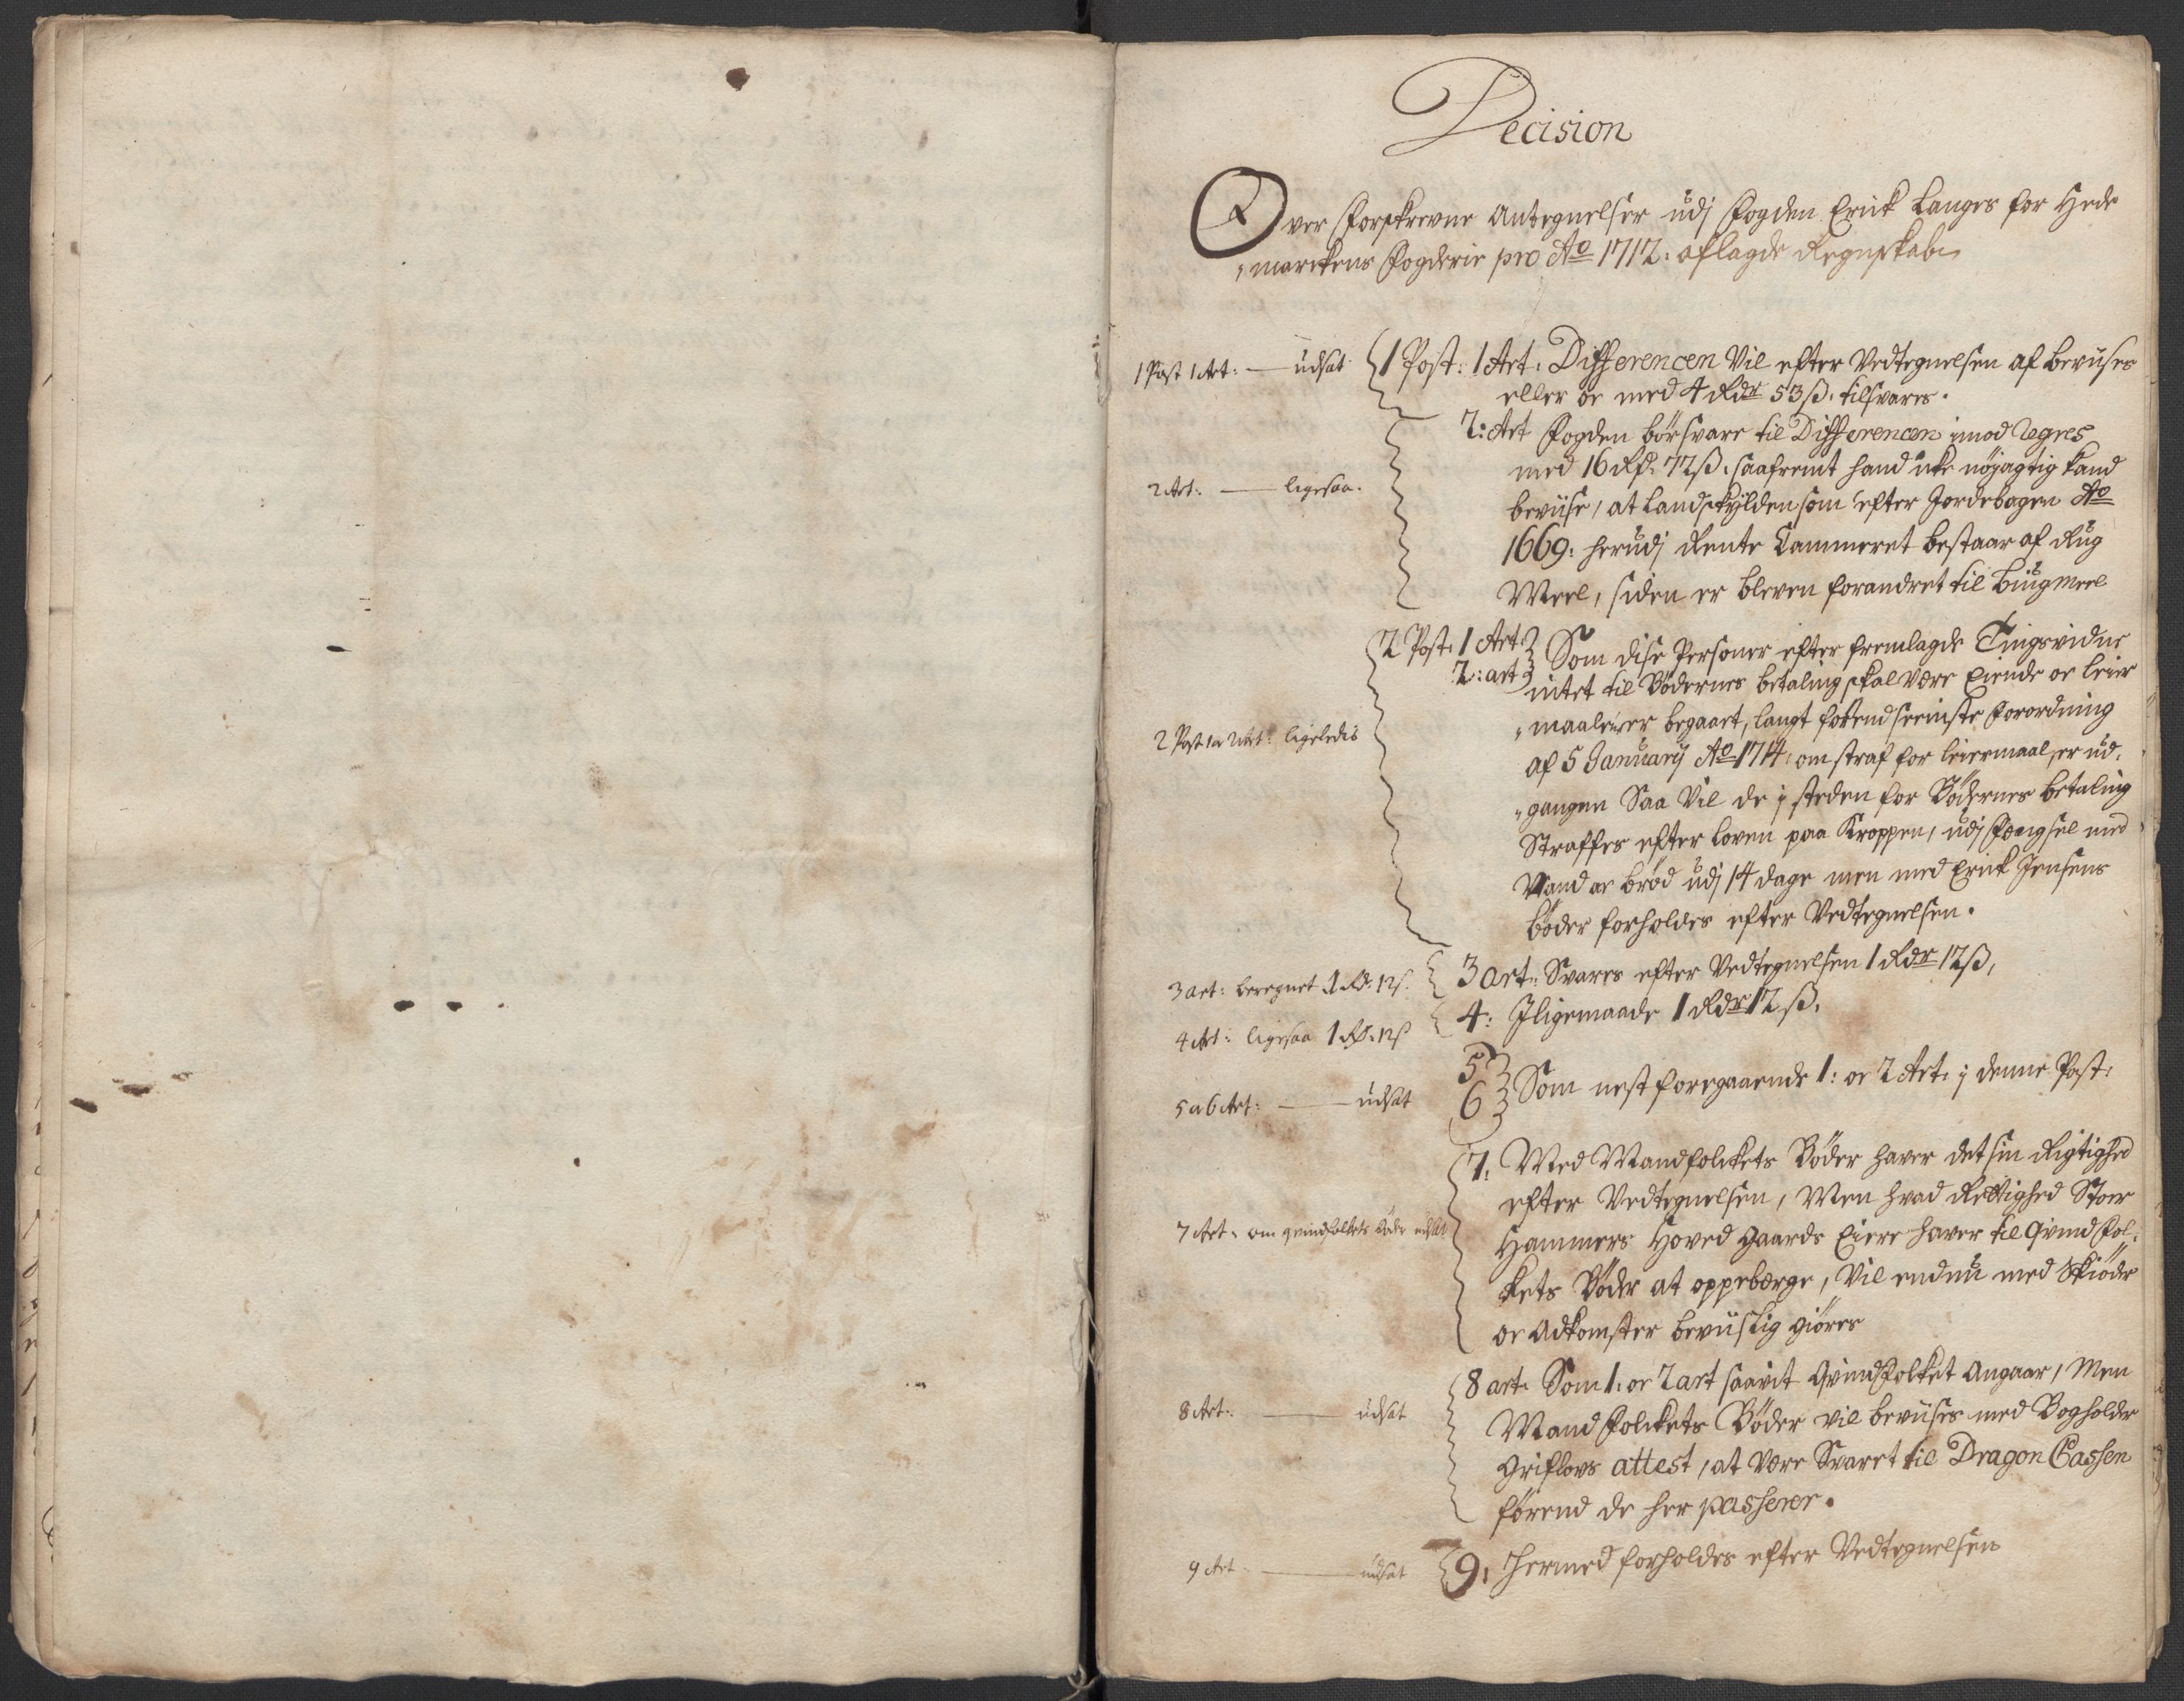 Decision
Over Forskrevne Antegnelser udj Fogden Erick Langes for Hede
„marckens Fogderie pro Ao 1712: aflagde Regnskab
1 Post 1 Art: — udsat
1 Post: 1 Art: Differencen Vil efter Vedtegnelsen af beviises
eller oc med 4 Rdr 53 ß. tilsvares.
2: Art Fogden bør svare til Differencen imod Regres
2 Art: — ligesaa.
med 16 Rd. 72 ß. saafremt hand icke nøjagtig kand
beviise, at Landskylden som efter Jordebogen Ao
1669: herudj Rente Cammeret bestaar af Rug
Meel, siden er bleven forandret til biugmeel
2 Post: 1 Art:
2: art
Som disse Personer efter fremlagde Tingsvidne
intet til Bødernes betaling skal være Eiende oc leier
„maalerer begaaet, langt førend seeniste Forordning
2 Post 1 a 2 Art: ligeledis
af 5 January Ao 1714: om straf for leiermaal, er ud-
„gangen Saa Vil de j steden for Bødernes betaling
Straffes efter loven paa Kroppen, udj Fængsel med
Vand oc brød udj 14 dage men med Erick Jensens
bøder forholdes efter Vedtegnelsen.
3 art: beregnet 1 Rd. 12 s.
3 art: Svares efter Vedtegnelsen 1 Rdr 12 ß,
4 Art: ligesaa 1 Rd. 12 s
4: Jligemaade 1 Rdr 12 ß.
5 a 6 Art: — udsat
5
6
Som nest foregaaende 1: oc 2 Art: j denne Post:
7. Med Mandfolckets Bøder haver det sin Rigtighed
efter Vedtegnelsen, Men hvad Rettighed Stoer
7 Art: om qvindfolkets bøde udsat
Hammers Hoved Gaards Eiere haver til Qvind Fol-
kets Bøder at oppebærge, Vil endnu med Skiøde
oc Adkomster beviislig giøres
8 art: Som 1. oc 2 art saavit Qvindfolket Angaar, Men
8 Art: — udsat
Mand Folckets Bøder vil beviises med Bogholder
Griflovs attest, at være Svaret til Dragon Cassen
førend de her passerer.
9 Art — udsat
9. Hermed forholdes efter Vedtegnelsen